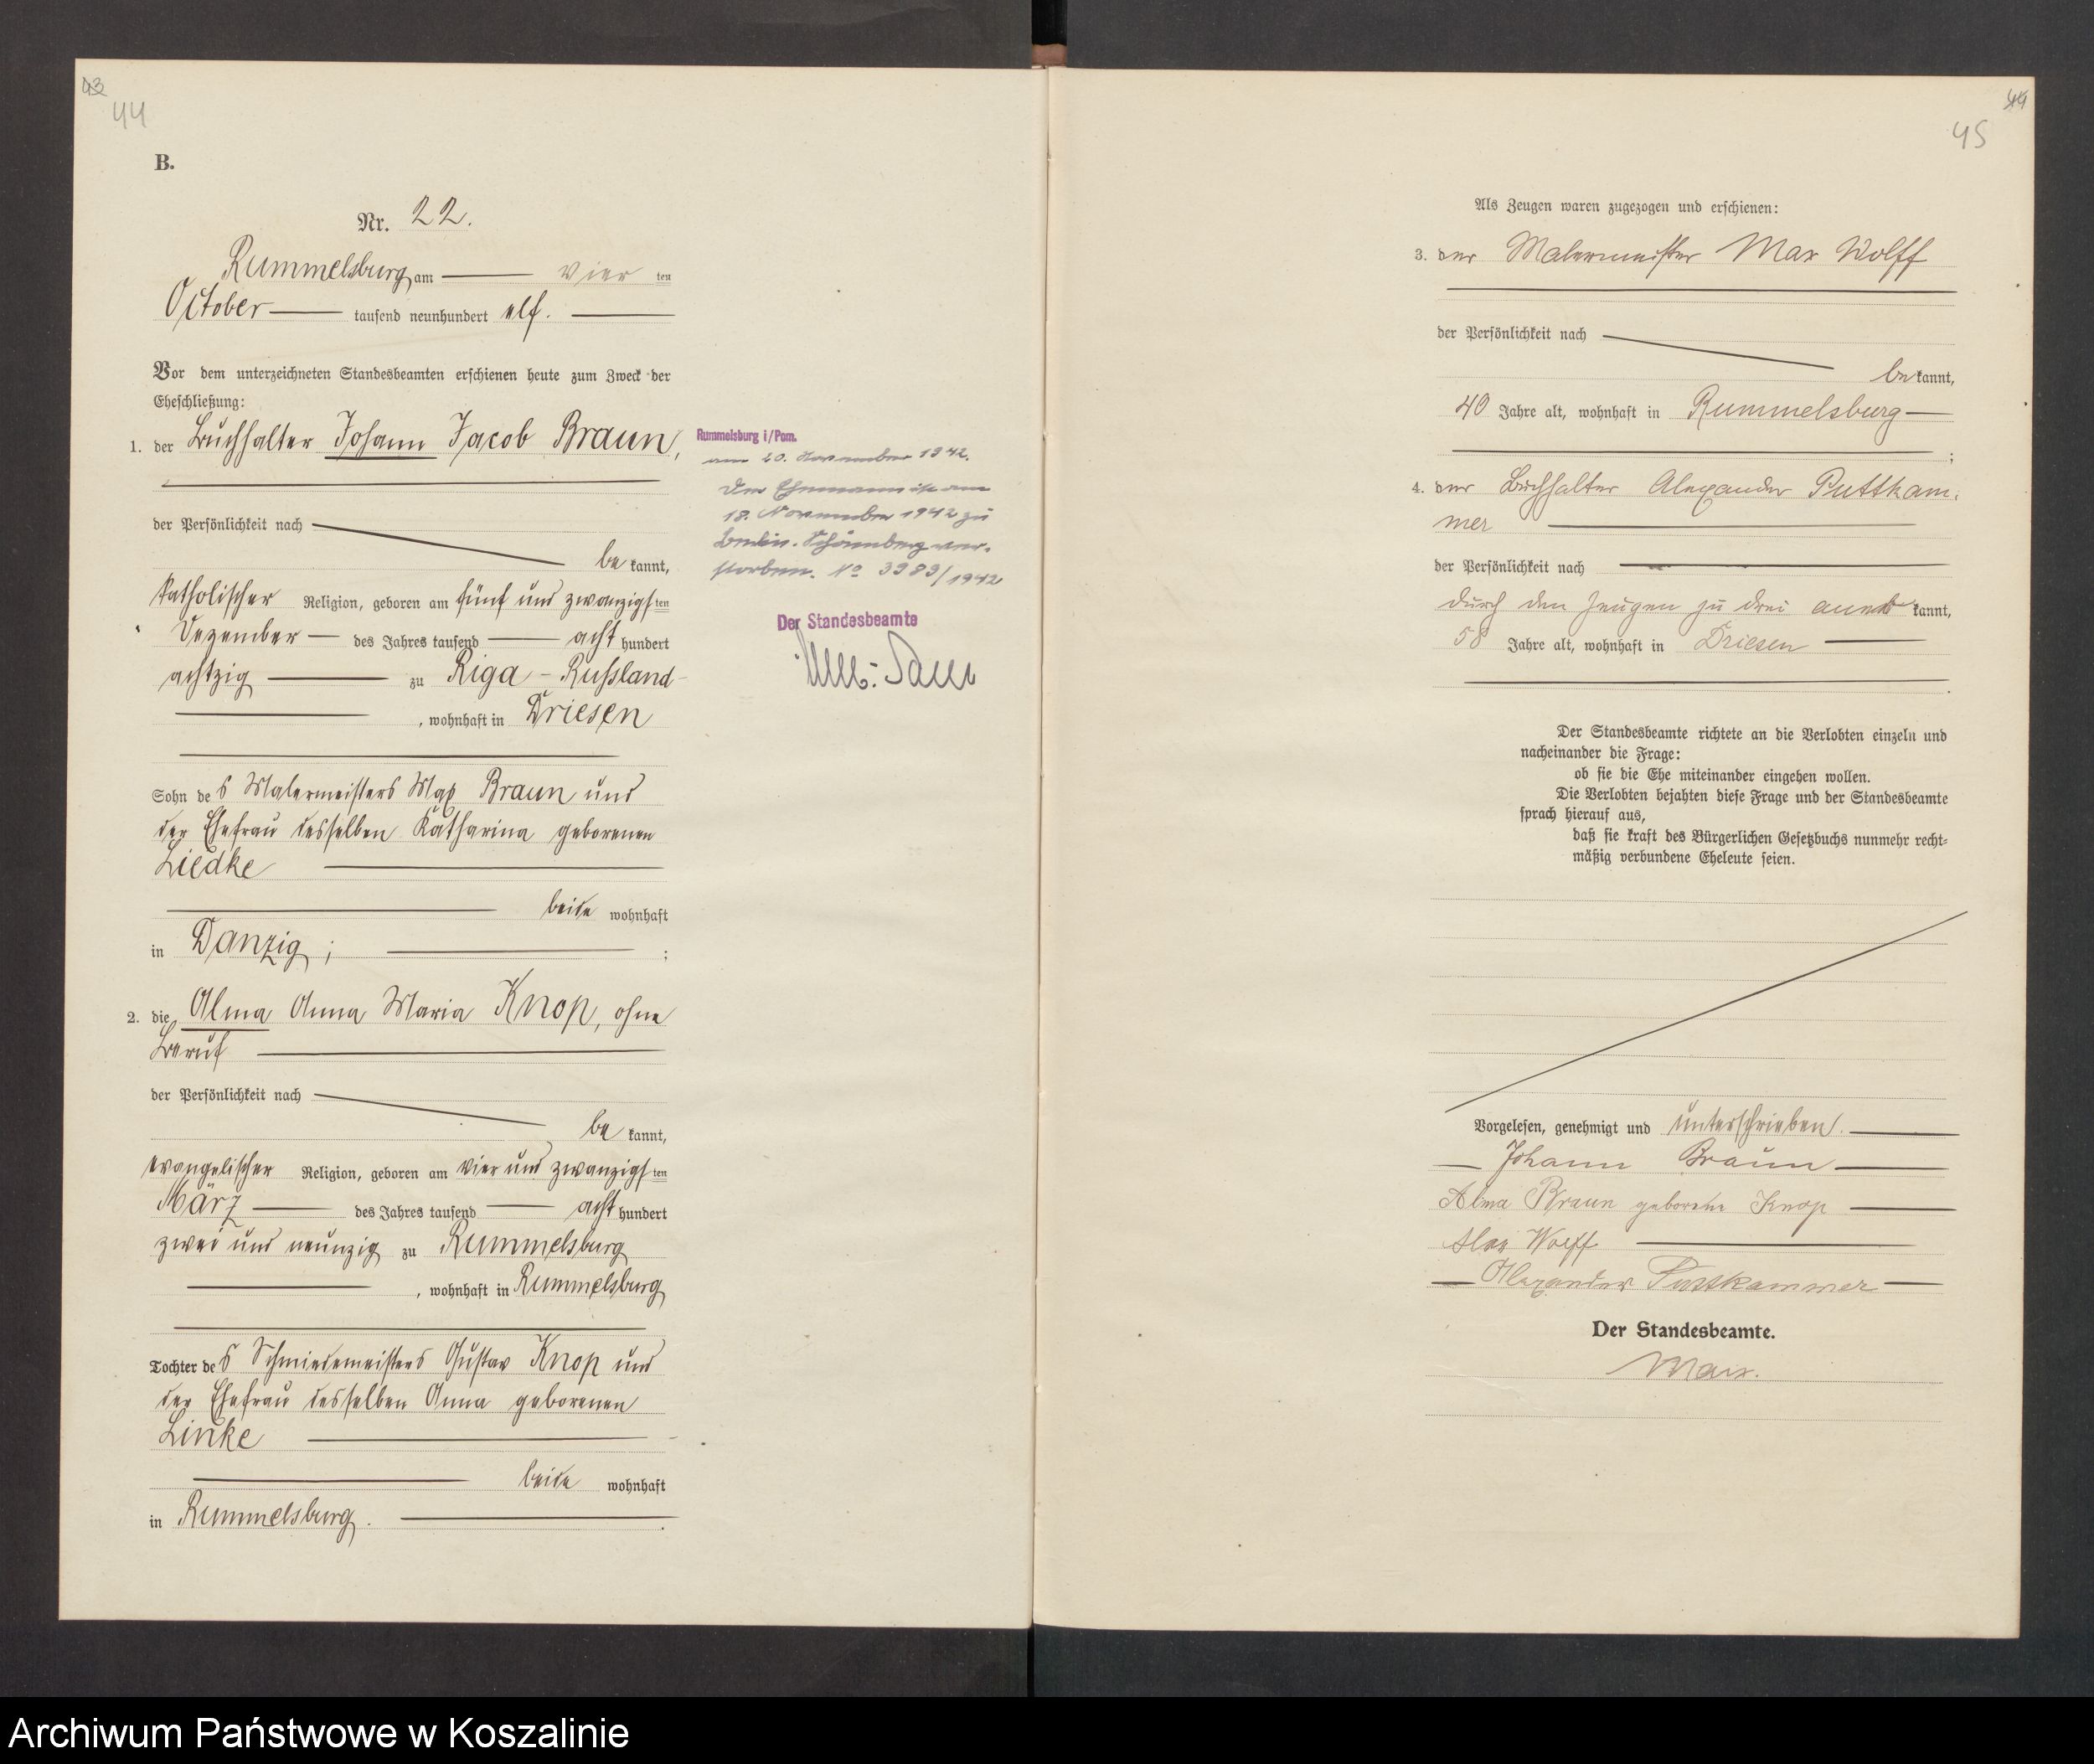 43
44
B.
Nr. 22.
Rummelsburg am vier ten
October tausend neunhundert elf.
Vor dem unterzeichneten Standesbeamten erschienen heute zum Zweck der
Eheschließung:
1. der Buchhalter Johann Jacob Braun,
der Persönlichkeit nach
be kannt,
katholischer Religion, geboren am fünf und zwanzigsten
Dezember des Jahres tausend acht hundert
achtzig zu Riga - Russland -
, wohnhaft in Driesen
Sohn des Malermeisters Max Braun und
der Ehefrau desselben Katharina geborenen
Liedke
beide wohnhaft
in Danzig ; ;
2. die Alma Anna Maria Knop, ohne
Beruf
der Persönlichkeit nach
be kannt,
evangelischer Religion, geboren am vier und zwanzigsten
März des Jahres tausend acht hundert
zwei und neunzig zu Rummelsburg
, wohnhaft in Rummelsburg
Tochter des Schmiedemeisters Gustav Knop und
der Ehefrau desselben Anna geborenen
Linke
beide wohnhaft
in Rummelsburg.
Rummelsburg i/Pom.
am 20. November 1942.
Der Ehemann ist am
18. November 1942 zu
Berlin-Schöneberg ver-
storben. No 3989/1942
Der Standesbeamte
44
45
Als Zeugen waren zugezogen und erschienen:
3. der Malermeister Max Wolff
der Persönlichkeit nach
be kannt,
40 Jahre alt, wohnhaft in Rummelsburg
;
4. der Buchhalter Alexander Puttkam-
mer
der Persönlichkeit nach
durch den Zeugen zu drei anerkannt,
58 Jahre alt, wohnhaft in Driesen
Der Standesbeamte richtete an die Verlobten einzeln und
nacheinander die Frage:
ob sie die Ehe miteinander eingehen wollen.
Die Verlobten bejahten diese Frage und der Standesbeamte
sprach hierauf aus,
daß sie kraft des Bürgerlichen Gesetzbuchs nunmehr recht-
mäßig verbundene Eheleute seien.
Vorgelesen, genehmigt und unterschrieben.
Johann Braun
Alma Braun geborene Knop
Max Wolff
Alexander Puttkammer
Der Standesbeamte.
Archiwum Państwowe w Koszalinie